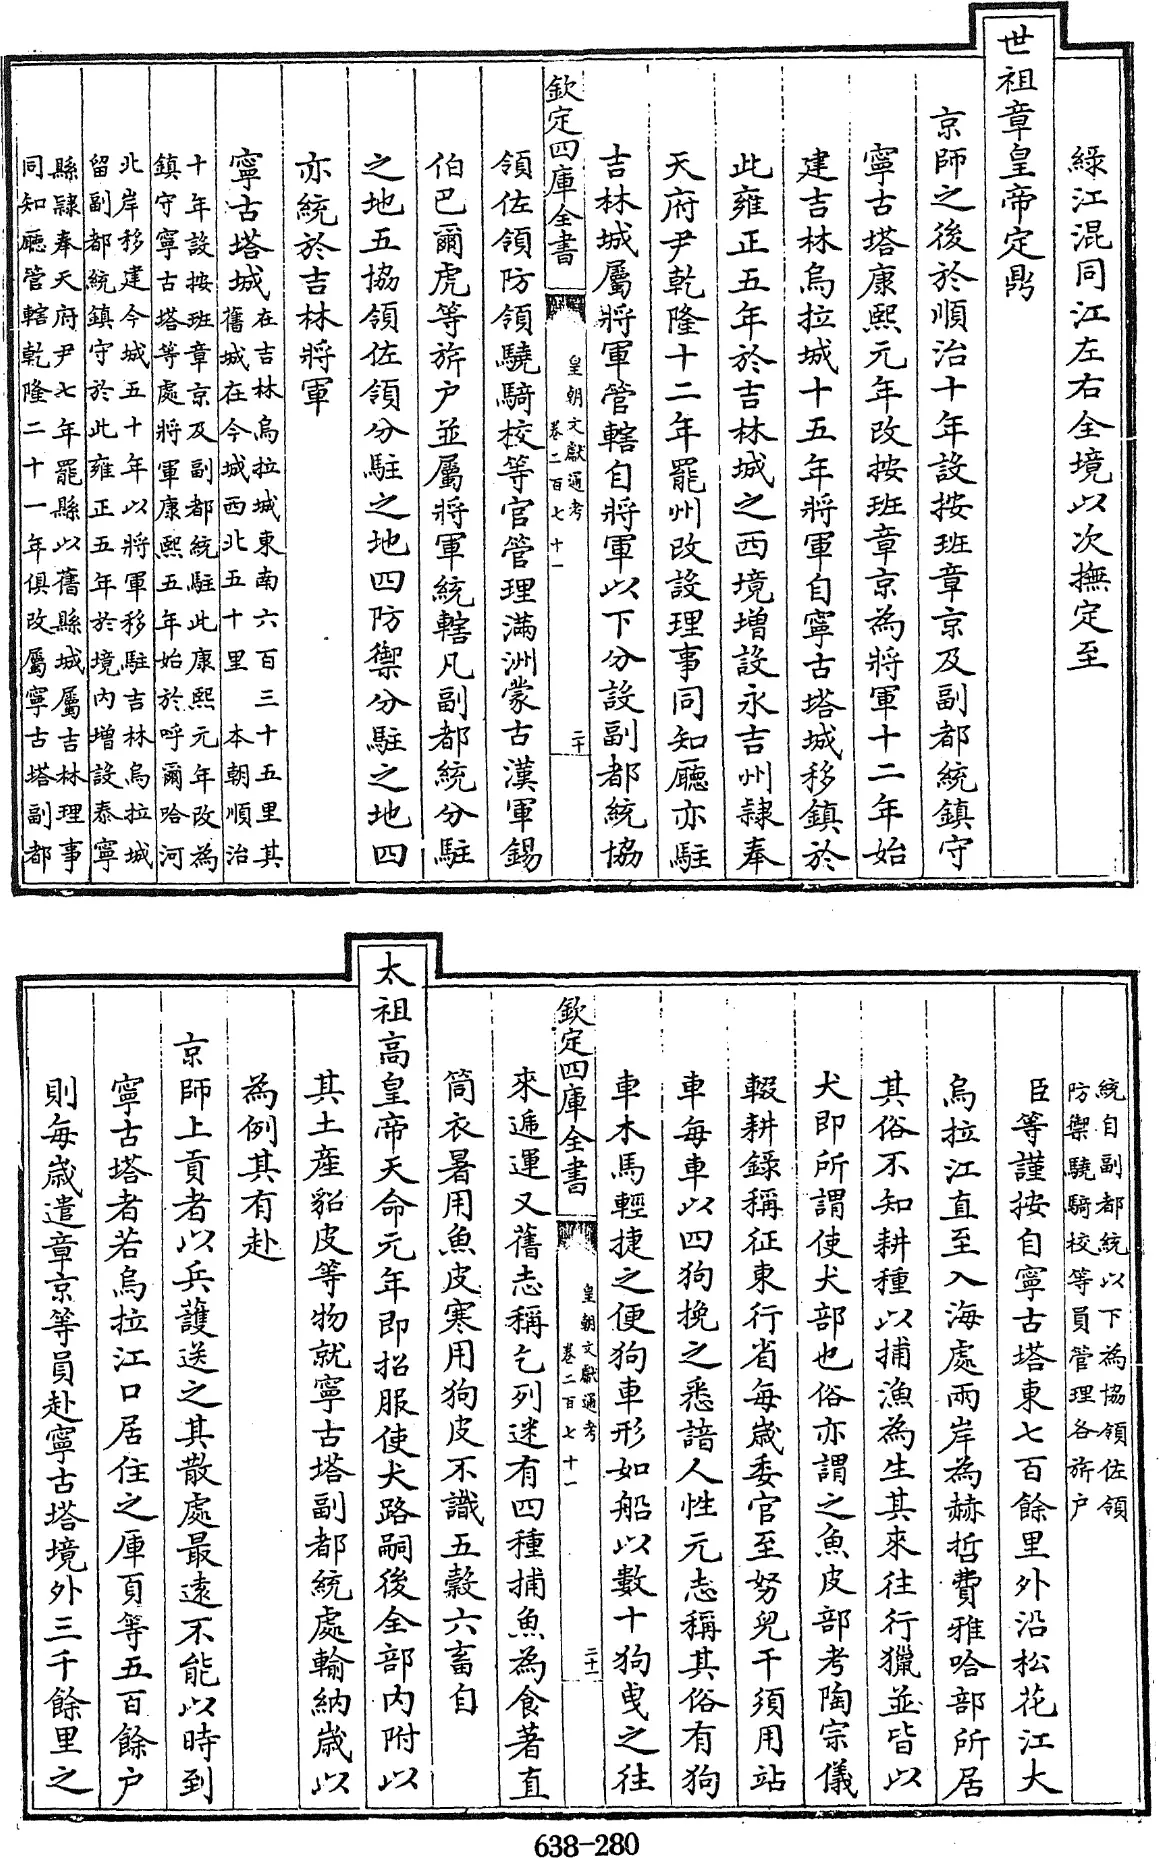 綠江混同江左右全境以次撫定至
世祖章皇帝定鼎
京師之後於順治十年設按班章京及副都統鎮守
寧古塔康熙元年改按班章京為將軍十二年始
建吉林烏拉城十五年將軍自寧古塔城移鎮於
此雍正五年於吉林城之西境增設永吉州隷奉
天府尹乾隆十二年罷州改設理事同知廳亦駐
吉林城屬將軍管轄自將軍以下分設副都統協
欽定四庫全書
皇朝文獻通考
卷二百七十一
二十
領佐領防領驍騎校等官管理滿洲蒙古漢軍錫
伯巴爾虎等旂户並屬將軍統轄凡副都統分駐
之地五協領佐領分駐之地四防禦分駐之地四
亦統於吉林將軍
寧古塔城在吉林烏拉城東南六百三十五里其
舊城在今城西北五十里 本朝順治
十年設按班章京及副都統駐此康熙元年改為
鎮守寧古塔等處將軍康熙五年始於呼爾哈河
北岸移建今城五十年以將軍移駐吉林烏拉城
留副都統鎮守於此雍正五年於境内增設泰寧
縣隷奉天府尹七年罷縣以舊縣城屬吉林理事
同知廳管轄乾隆二十一年俱改屬寧古塔副都
統自副都統以下為協領佐領
防禦驍騎校等員管理各旂户
臣等謹按自寧古塔東七百餘里外沿松花江大
烏拉江直至入海處兩岸為赫哲費雅哈部所居
其俗不知耕種以捕漁為生其來往行獵並皆以
犬即所謂使犬部也俗亦謂之魚皮部考陶宗儀
輟耕錄稱征東行省每歲委官至努兒干須用站
車每車以四狗挽之悉諳人性元志稱其俗有狗
車木馬輕捷之便狗車形如船以數十狗曳之往
欽定四庫全書
皇朝文獻通考
卷二百七十一
二十一
來遞運又舊志稱乞列迷有四種捕魚為食著直
筒衣暑用魚皮寒用狗皮不識五穀六畜自
太祖高皇帝天命元年即招服使犬路嗣後全部内附以
其土産貂皮等物就寧古塔副都統處輸納歲以
為例其有赴
京師上貢者以兵護送之其散處最遠不能以時到
寧古塔者若烏拉江口居住之庫頁等五百餘户
則每歲遣章京等員赴寧古塔境外三千餘里之
638-280